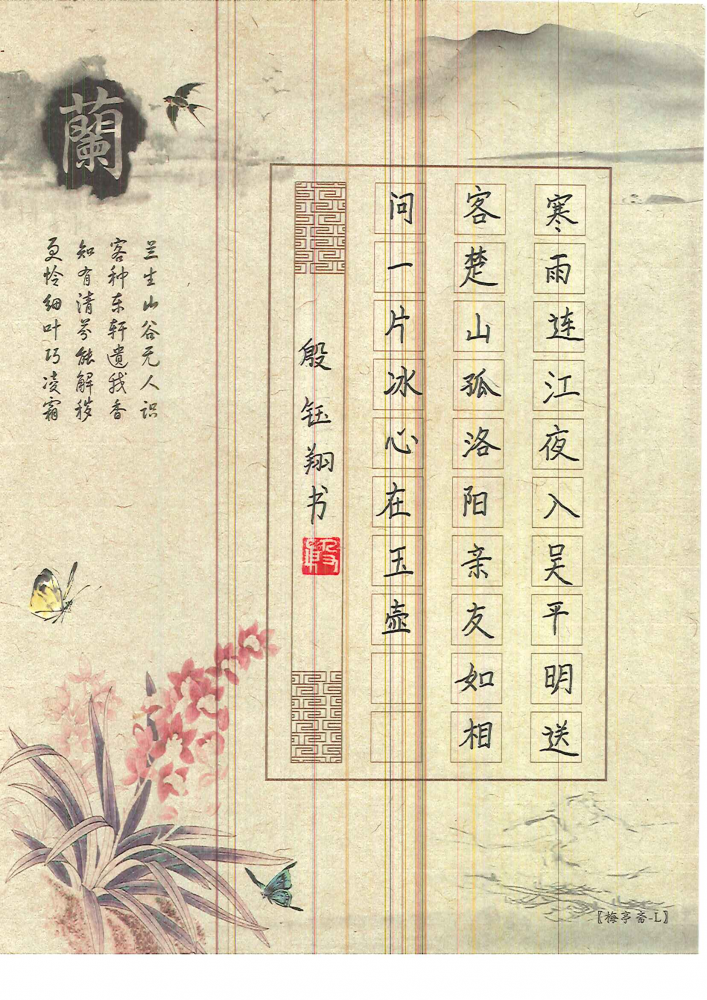 寒雨连江夜入吴平明送
客楚山孤洛阳亲友如相
问一片冰心在玉壶
殷钰翔书
殷
蘭
兰生山谷无人识
客种东轩遗我香
知有清芬能解秽
更怜细叶巧凌霜
〖梅亭斋-L〗